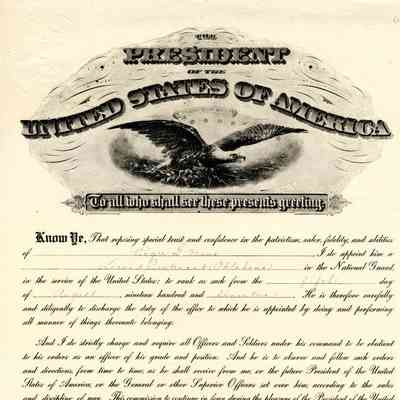 THE
PRESIDENT
OF THE
UNITED STATES OF AMERICA
To all who shall see these presents greeting:
Know Ye, That reposing special trust and confidence in the patriotism, valor, fidelity, and abilities
of , I do appoint him a
in the National Guard,
in the service of the United States; to rank as such from the day
of August nineteen hundred and seventeen. He is therefore carefully
and diligently to discharge the duty of the office to which he is appointed by doing and performing
all manner of things thereunto belonging.
And I do strictly charge and require all Officers and Soldiers under his command to be obedient
to his orders as an officer of his grade and position. And he is to observe and follow such orders
and directions, from time to time, as he shall receive from me, or the future President of the United
States of America, or the General or other Superior Officers set over him, according to the rules
and discipline of war. This commission to continue in force during the pleasure of the President of the United